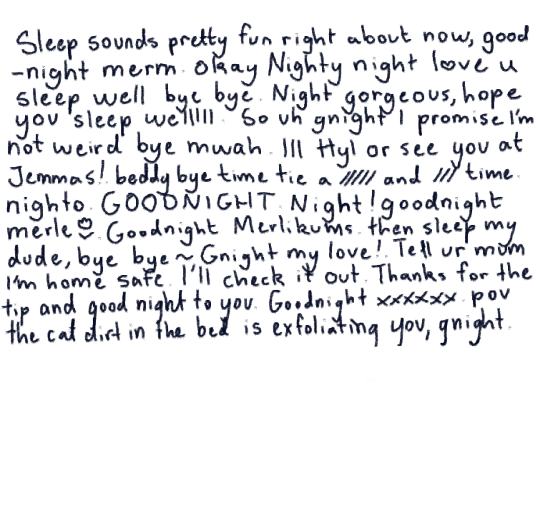 Sleep sounds pretty fun right about now, good
-night merm. Okay Nighty night love u
sleep well bye bye. Night gorgeous, hope
you sleep wellllll. So uh gnight I promise I'm
not weird bye mwah. Ill ttyl or see you at
Jemmas! beddy bye time tie a ////// and //// time.
nighto. GOODNIGHT. Night! goodnight
merle Goodnight Merlikums. then sleep my
dude, bye bye ~ Gnight my love! Tell ur mom
I'm home safe. I'll check it out. Thanks for the
tip and good night to you. Goodnight xxxxxx. pov
the cat dirt in the bed is exfoliating you, gnight.